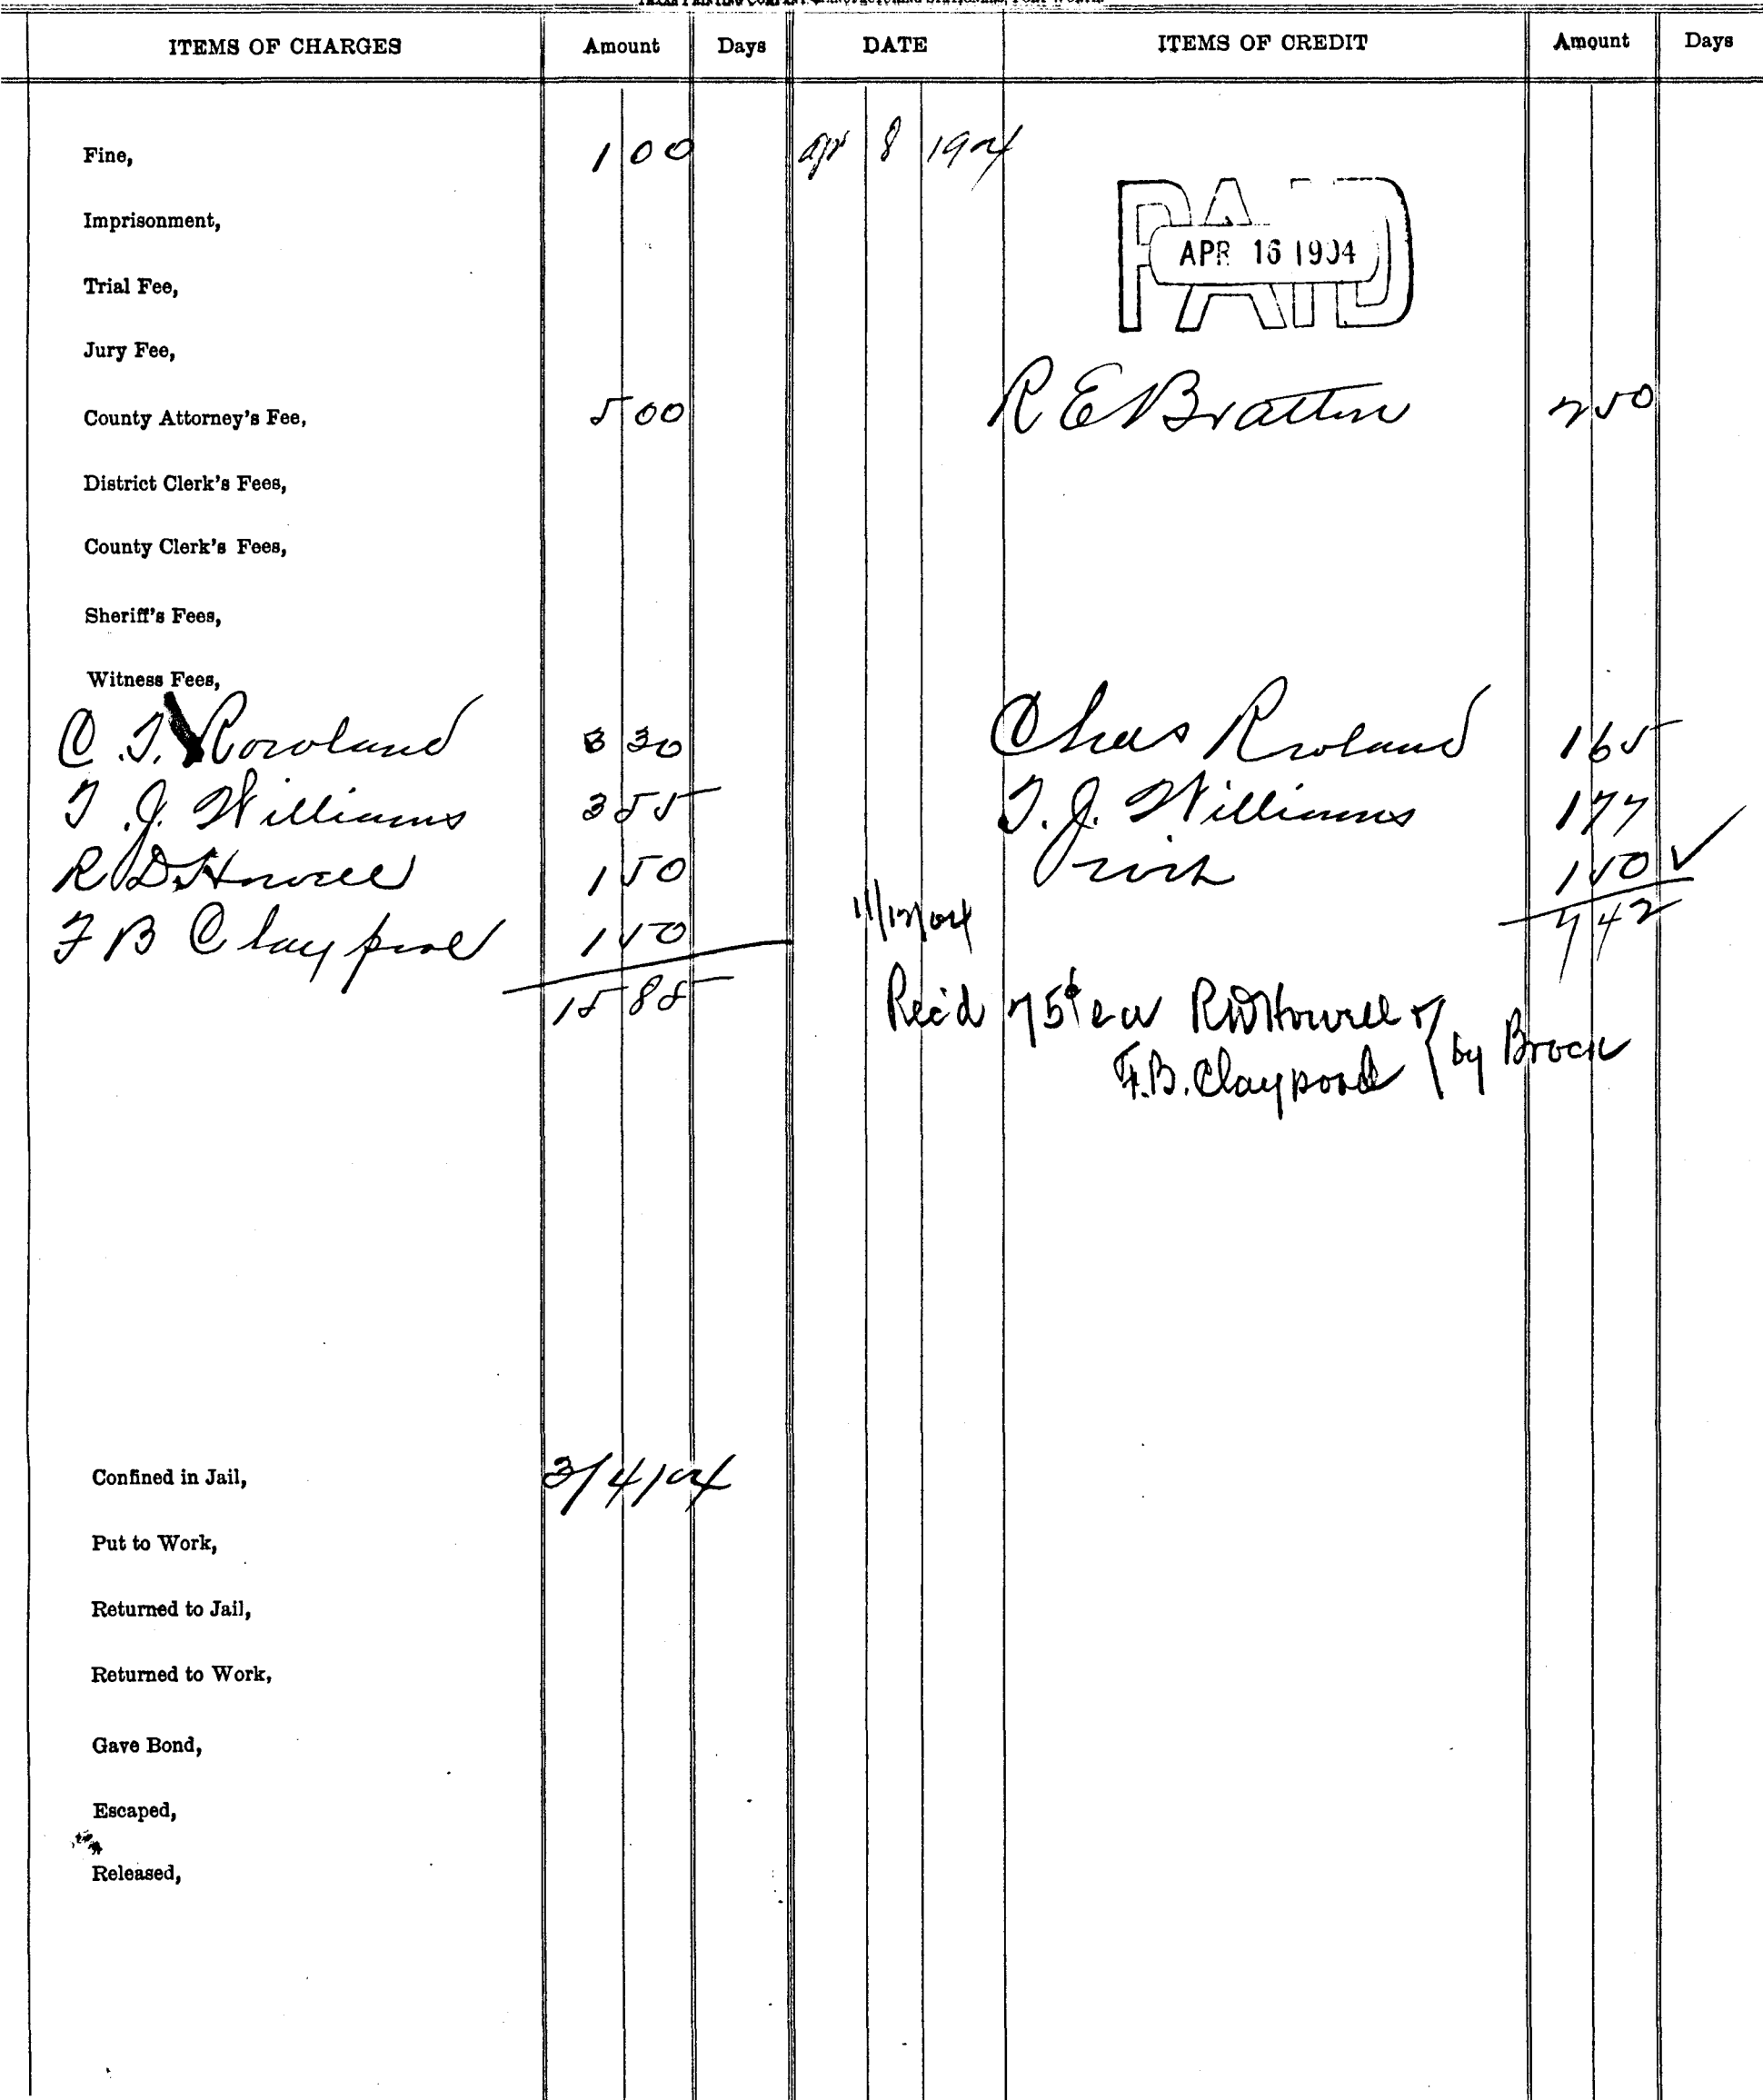 ITEMS OF CHARGES Amount Days DATE ITEMS OF CREDIT Amount Days
Fine, 1 00 Apr 8 1904
PAID
APR 16 1904
Imprisonment,
Trial Fee,
Jury Fee,
County Attorney's Fee, 5 00 R E Bratton 2 50
District Clerk's Fees,
County Clerk's Fees,
Sheriff's Fees,
Witness Fees,
C. T. Rowland 3 30 Chas Rowland 1 65
T. J. Williams 3 55 T. J. Williams 1 77
R D Howell 1 50 1 50 ✓
F B Claypool 1 50 11/12/04 7 42
15 85
Rec'd 75¢ ea R D Howell & F.B. Claypool by Brock
Confined in Jail, 3/4/04
Put to Work,
Returned to Jail,
Returned to Work,
Gave Bond,
Escaped,
Released,